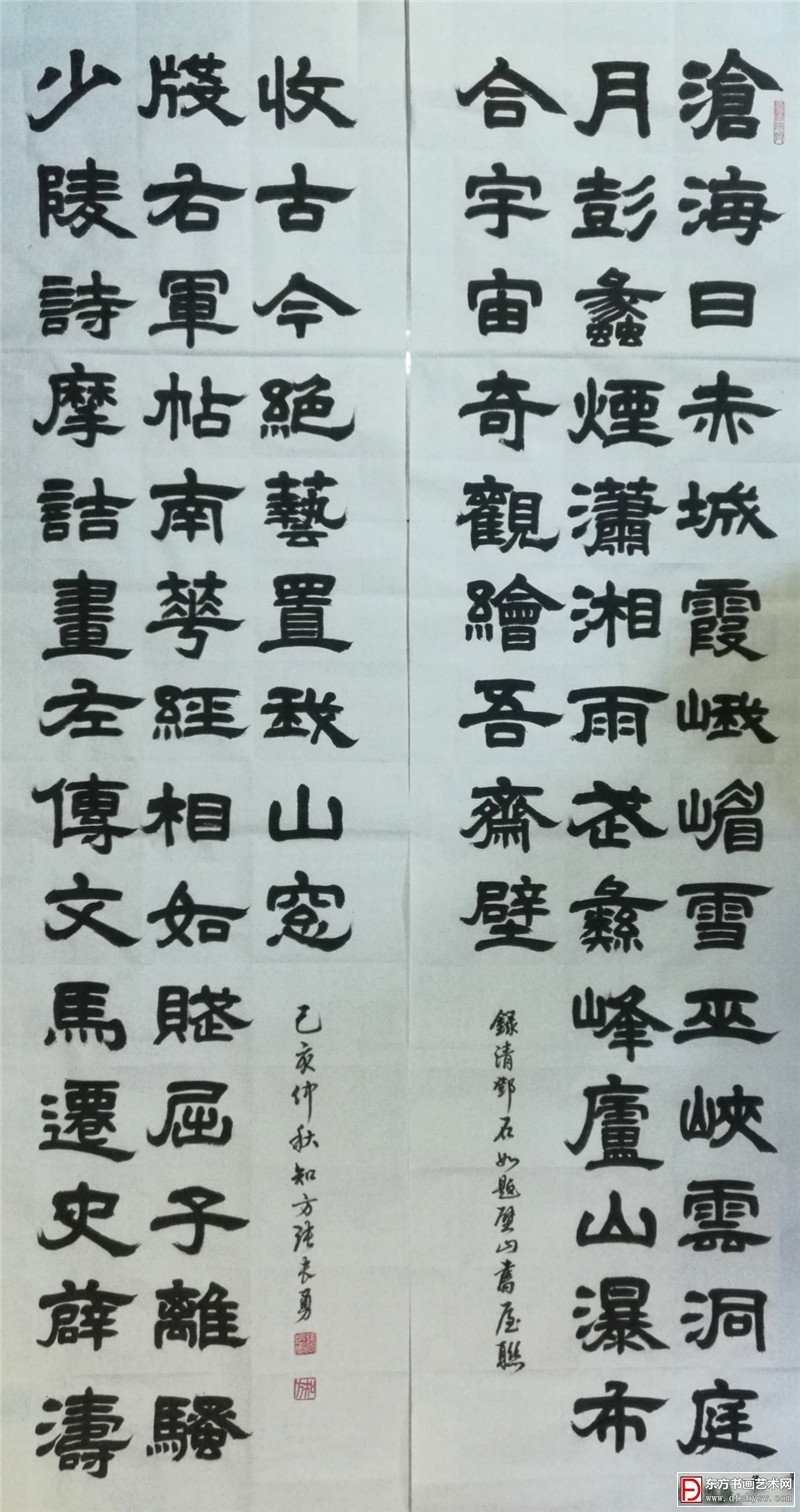 滄海日赤城霞峨嵋雪巫峽雲洞庭
月彭蠡煙瀟湘雨武彝峰廬山瀑布
合宇宙奇觀繪吾齋壁
錄清鄧石如題碧山書屋聯
少陵詩摩詰畫左傳文馬遷史薛濤
牋右軍帖南華經相如賦屈子離騷
收古今絕藝置我山窓
己亥仲秋知方張勇
东方书画艺术网
www.dfshysw.com